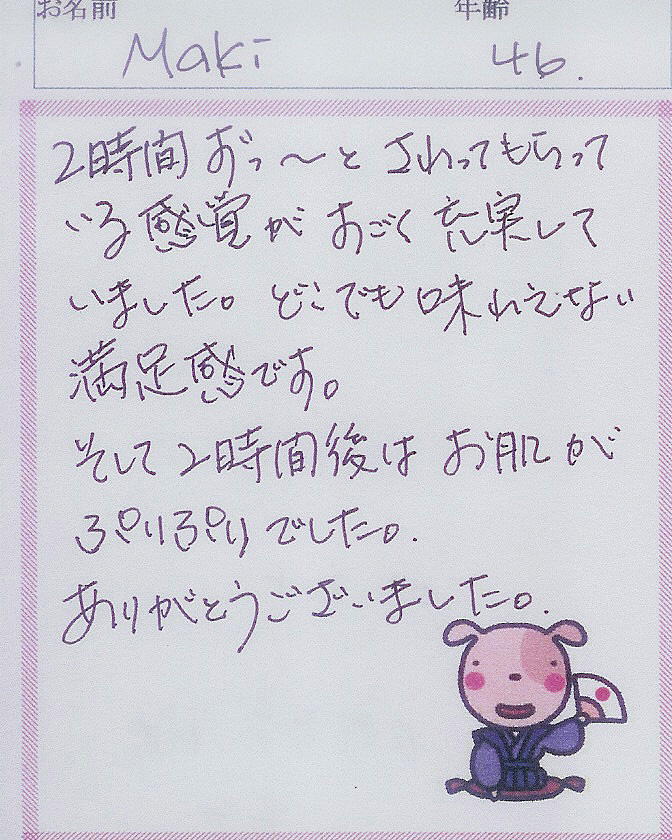 お名前 年齢
Maki 46.
2時間 ずっ〜と さわってもらって
いる感覚が すごく 充実して
いました。 どこでも 味わえない
満足感です。
そして 2時間後は お肌が
ぷりぷり でした。.
ありがとうございました。.